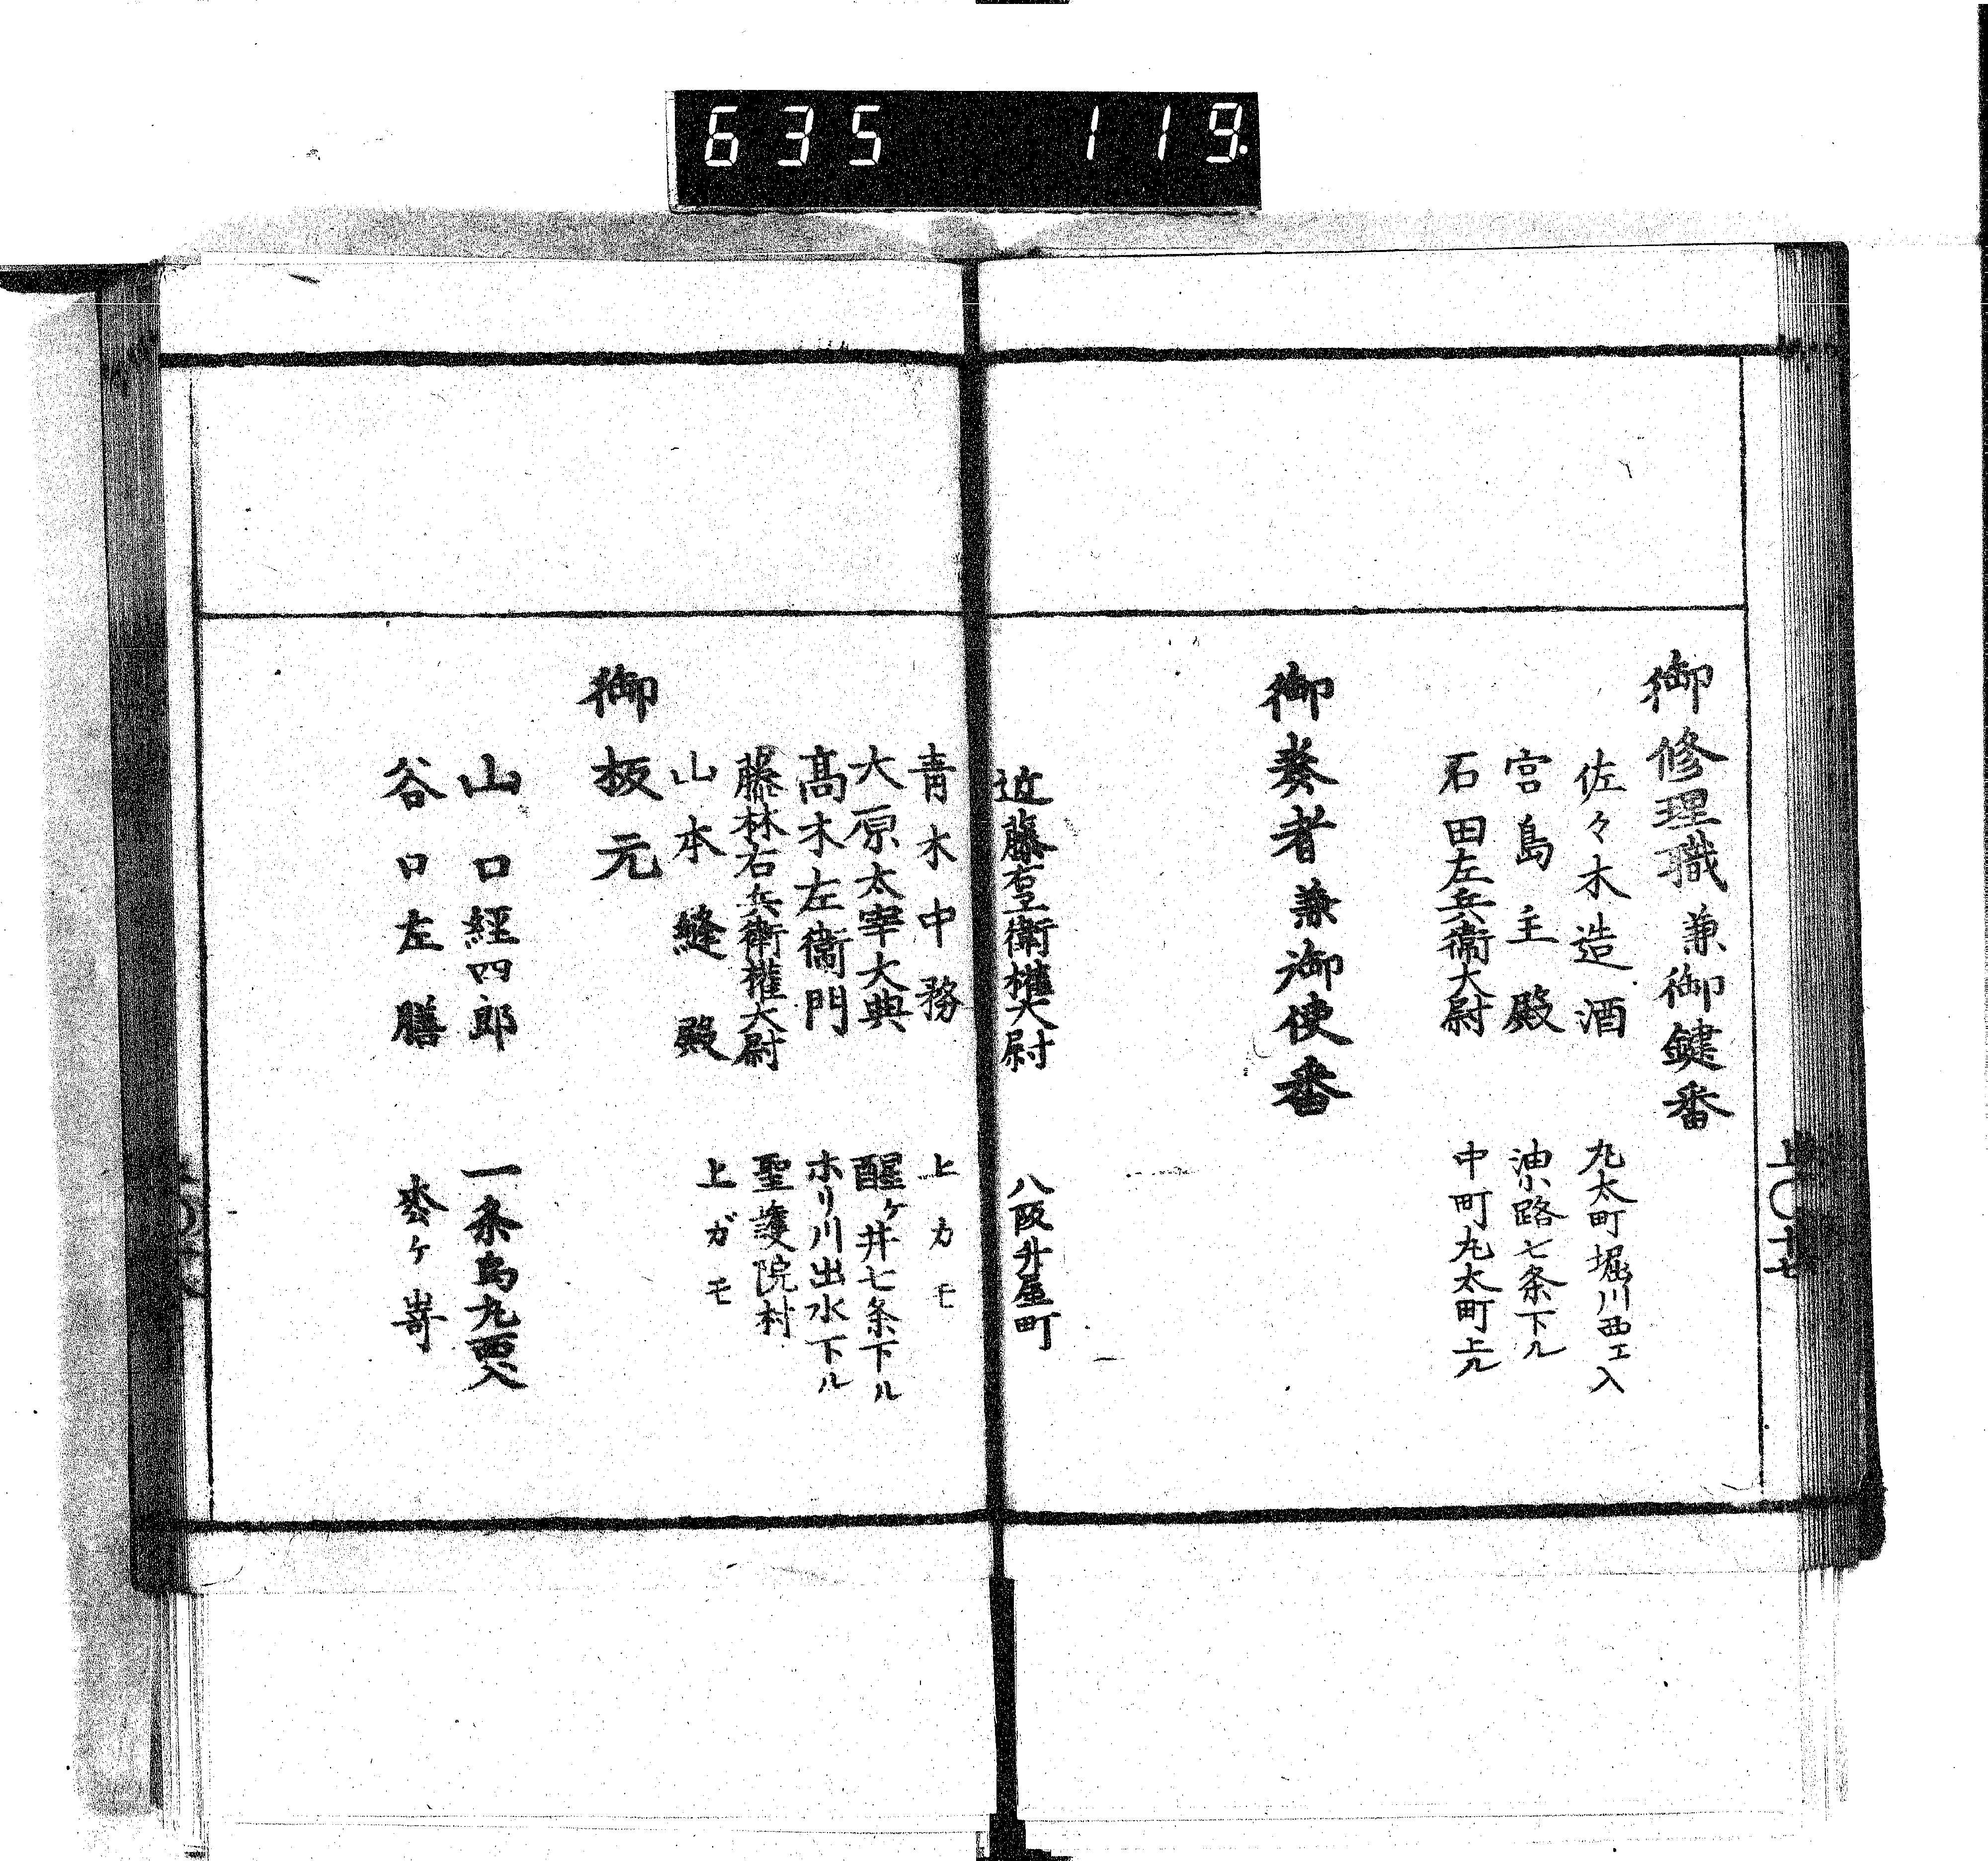 635 119.
御修理職兼御鍵番
佐々木造酒 丸太町堀川西エ入
宮島主殿 油小路七条下ル
石田左兵衛大尉 中町丸太町上ル
御奏者兼御使番
近藤右衛権大尉 八阪井屋町
青木中務 上カモ
大原太宰大典 醒ヶ井七条下ル
髙木左衞門 ホリ川出水下ル
藤林右兵衛權大尉 聖護院村
山本縫殿 上ガモ
御板元
山口経四郎 一条烏丸西入
谷口左膳 枩ヶ嵜
上〇十七